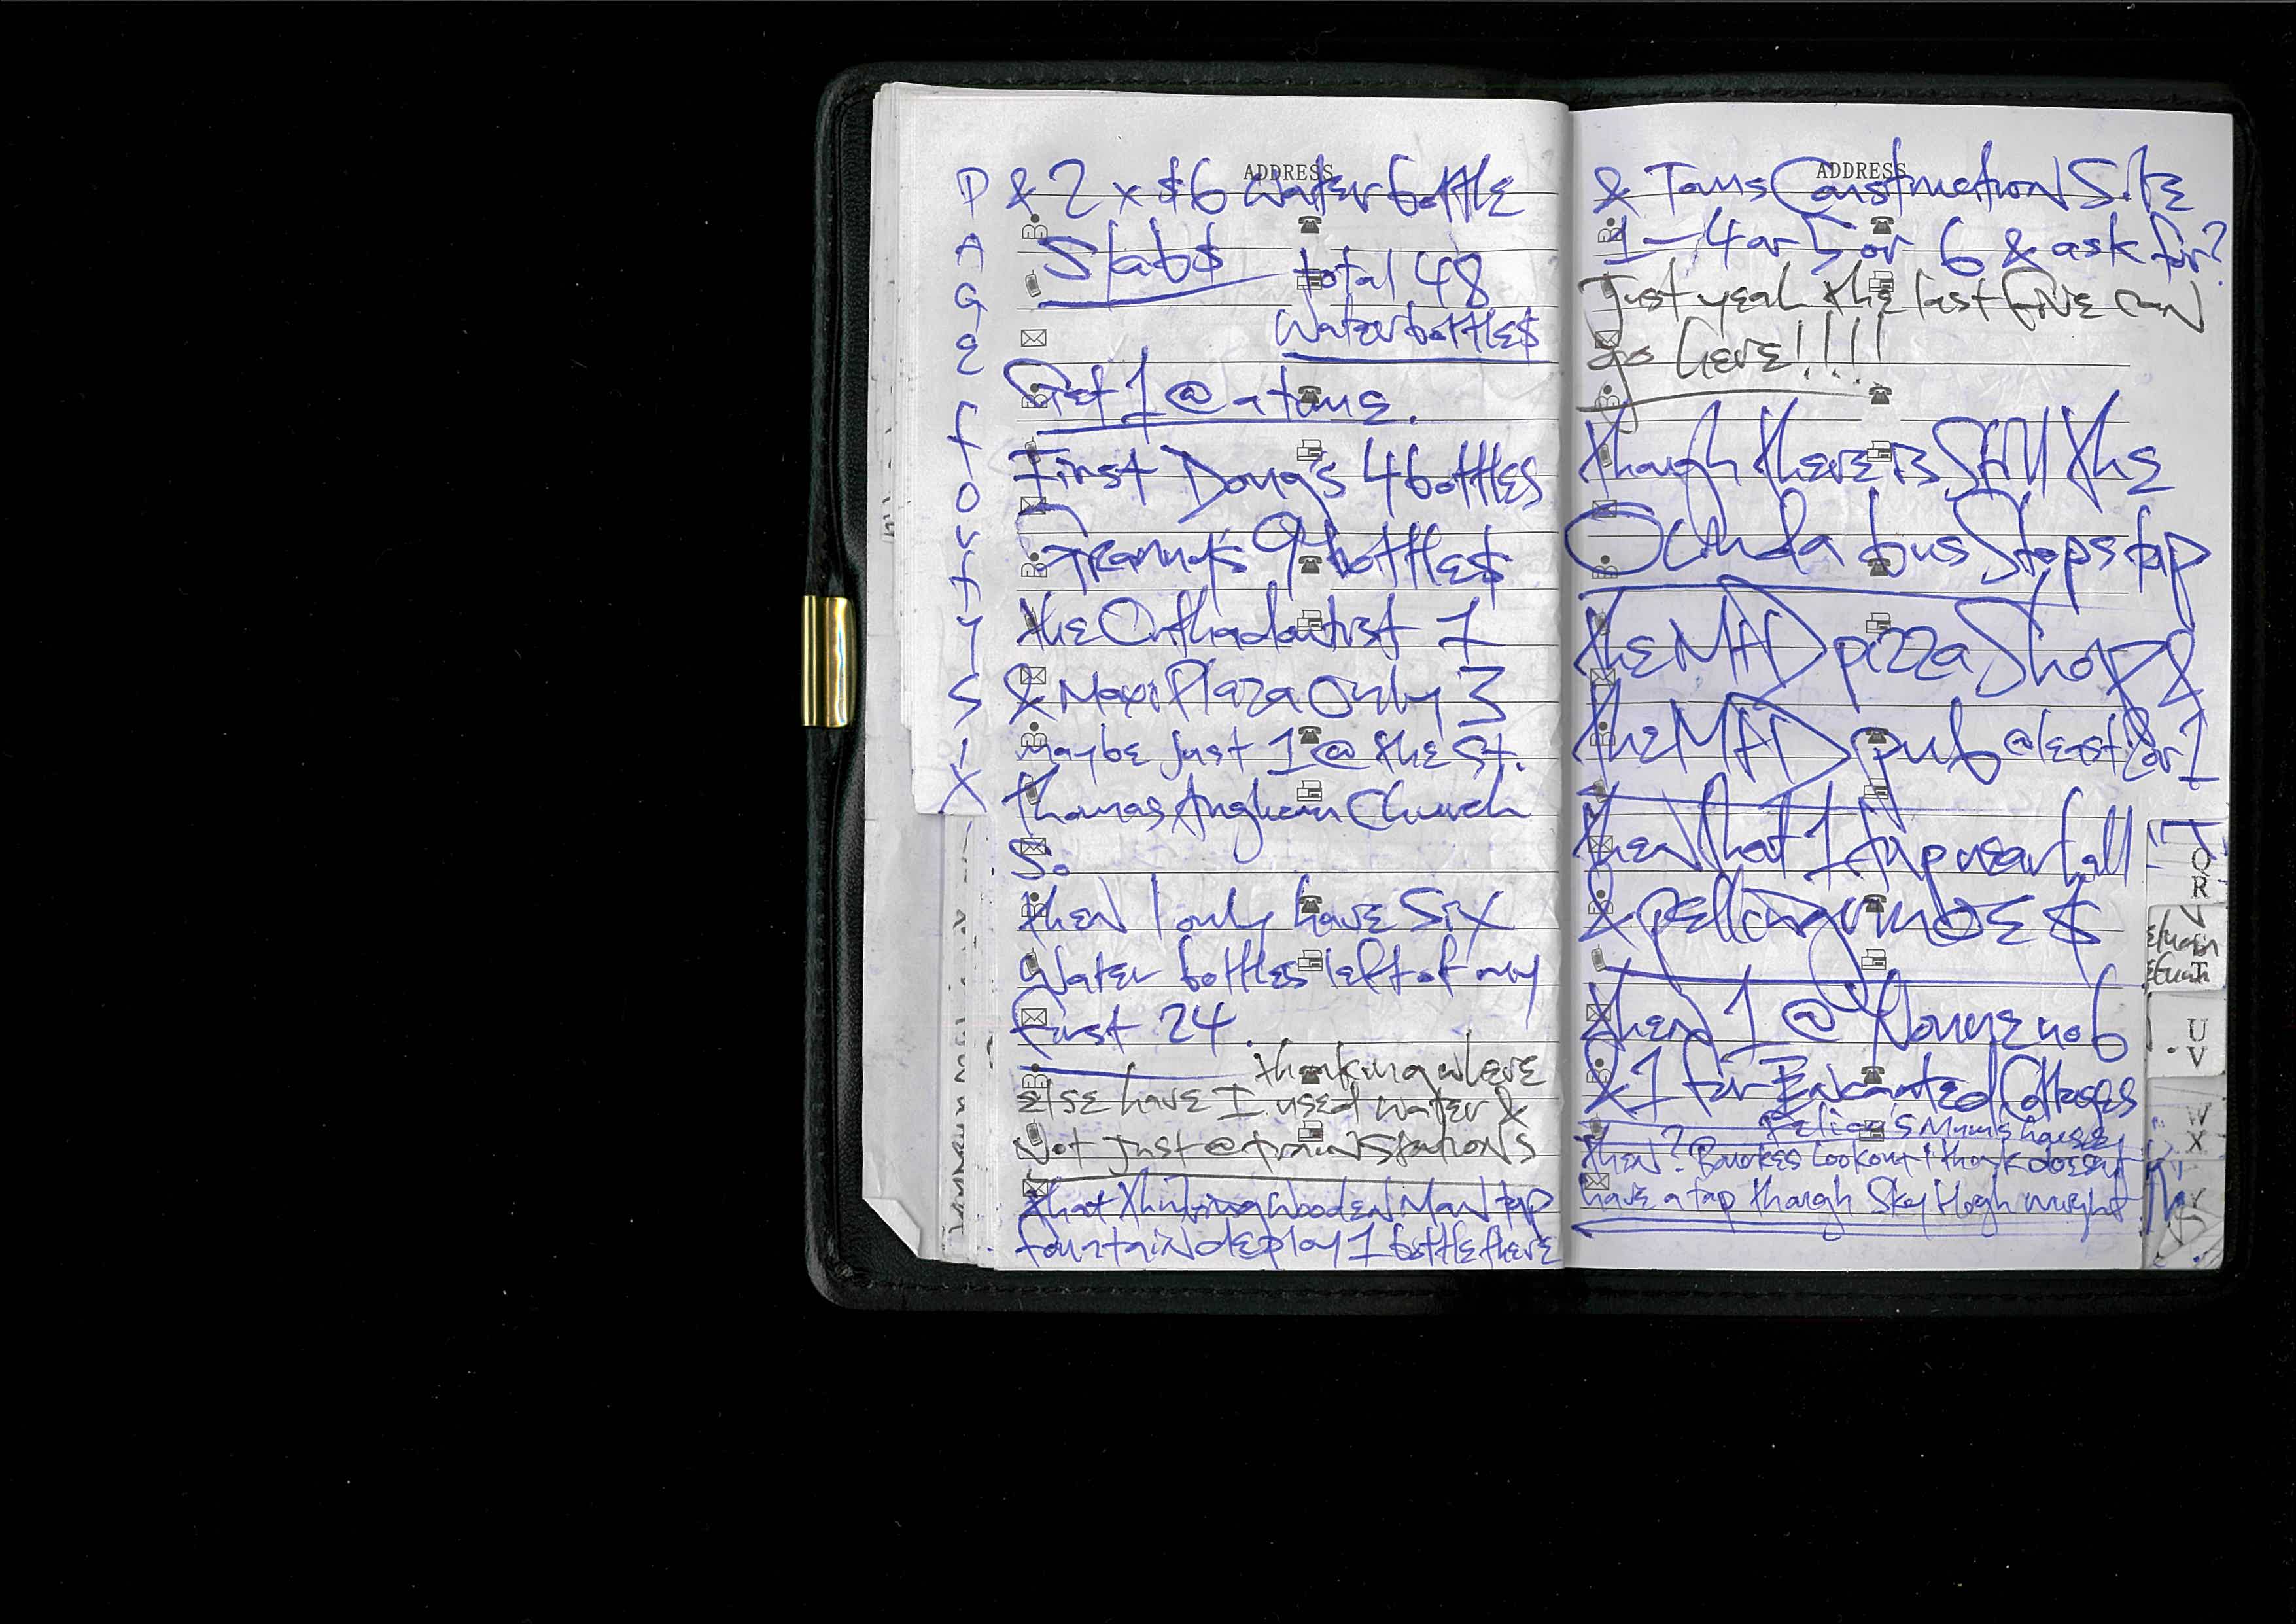 PAGE FOURTY SIX
ADDRESS
& 2 x $6 water bottle
Slab$
total 48
Waterbottle$
Get 1 @ a time.
First Doug's 4 bottles
Granny's 9 bottle$
the Orthadontist 1
& Maxi Plaza Only 3
maybe just 1 @ the St.
Thomas Anglican Church
So
then I only have Six
Water bottles left of my
First 24.
thinking where
else have I used water &
Not just @ train stations
that thinking Wooden Man tap
fountain deploy 1 bottle there
ADDRESS
& Toms Construction Site
1 - 4 or 5 or 6 & ask for?
Just yeah the last five can
go here!!!!
though there is Still the
bus Stops tap
the MAD pizza Shop &
the MAD pub @ least for 1
then that 1 tap near
&
then 1 @ no 6
& 1 for Enhanted Cottages
Felicia's Mums house
then? Bourkes Lookout I think doesnt
have a tap though Sky High might
Q
R
T
U
V
W
X
Y